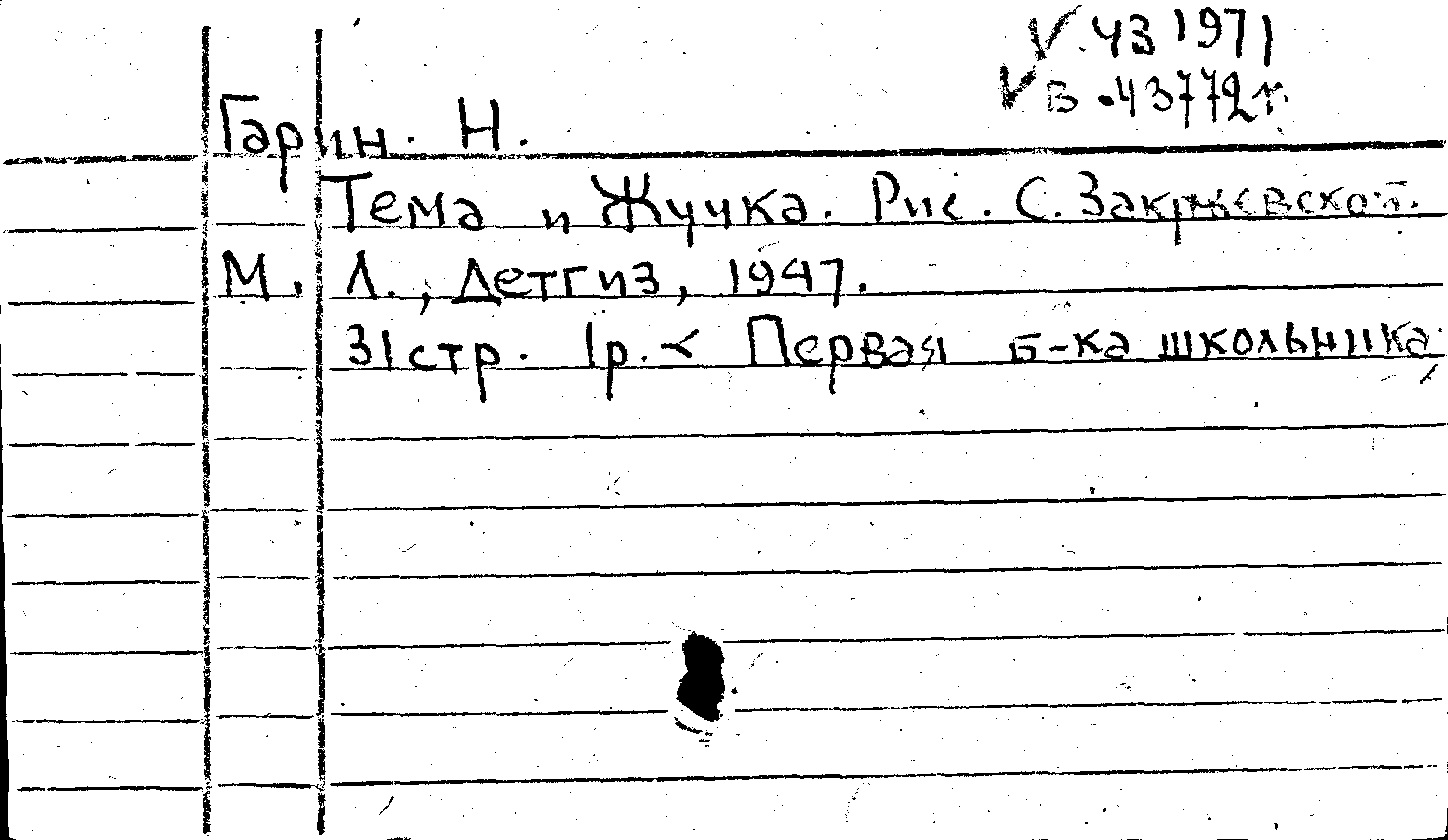 ✓ 43 1971
✓ В 43772 г.
Гарин. Н.
Тема и Жучка. Рис. С. Закржевской.
М. Л., Детгиз, 1947.
31 стр. 1р. < Первая б-ка школьника